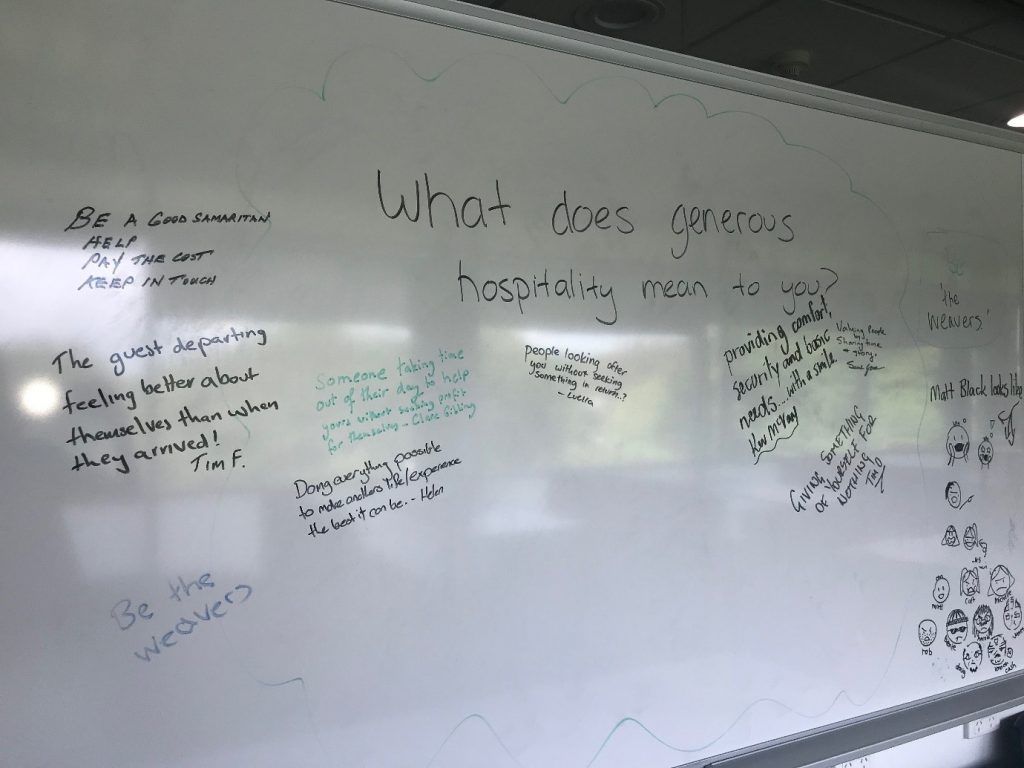 What does generous
hospitality mean to you?
BE A GOOD SAMARITAN
HELP
PAY THE COST
KEEP IN TOUCH
The guest departing
feeling better about
themselves than when
they arrived!
Tim F.
Someone taking time
out of their day to help
without seeking profit
for themselves -
Doing everything possible
to make anothers life/experience
the best it can be. - Helen
People looking after
you without seeking
something in return..?
- Lucira
providing comfort,
security and basic
needs... with a smile
GIVING SOMETHING
OF YOURSELF FOR
NOTHING
TIM D
Be the
weavers
'Be
the
weavers'
Matt Black looks like
rob
cath